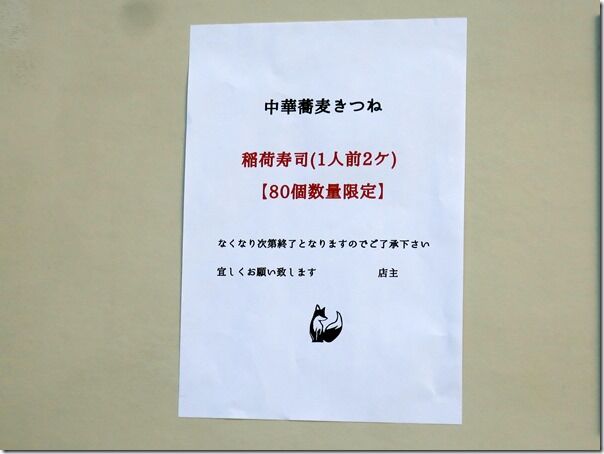 中華蕎麦きつね
稲荷寿司(1人前2ケ)
【80個数量限定】
なくなり次第終了となりますのでご了承下さい
宜しくお願い致します　　　　　　店主